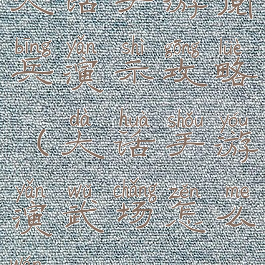 bīng yǎn shì gōng lüè
兵演示攻略
dà huà shǒu yóu
（大话手游
yǎn wǔ chǎng zěn me
演武场怎么